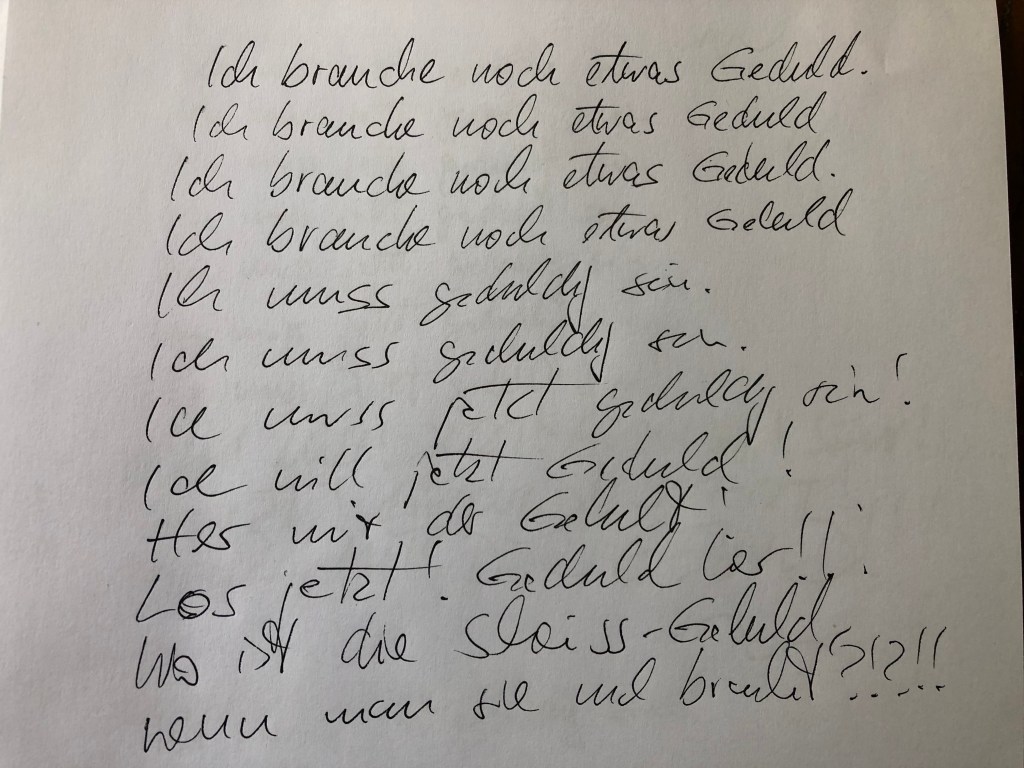 Ich brauche noch etwas Geduld.
Ich brauche noch etwas Geduld
Ich brauche noch etwas Geduld.
Ich brauche noch etwas Geduld
Ich muss geduldig sein.
Ich muss geduldig sein.
Ich muss jetzt geduldig sein!
Ich will jetzt Geduld!
Her mir der Geduld!
Los jetzt! Geduld her!!
Wo ist die Scheiss-Geduld
wenn man sie mal braucht?!?!!